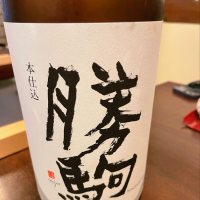 本仕込
勝駒